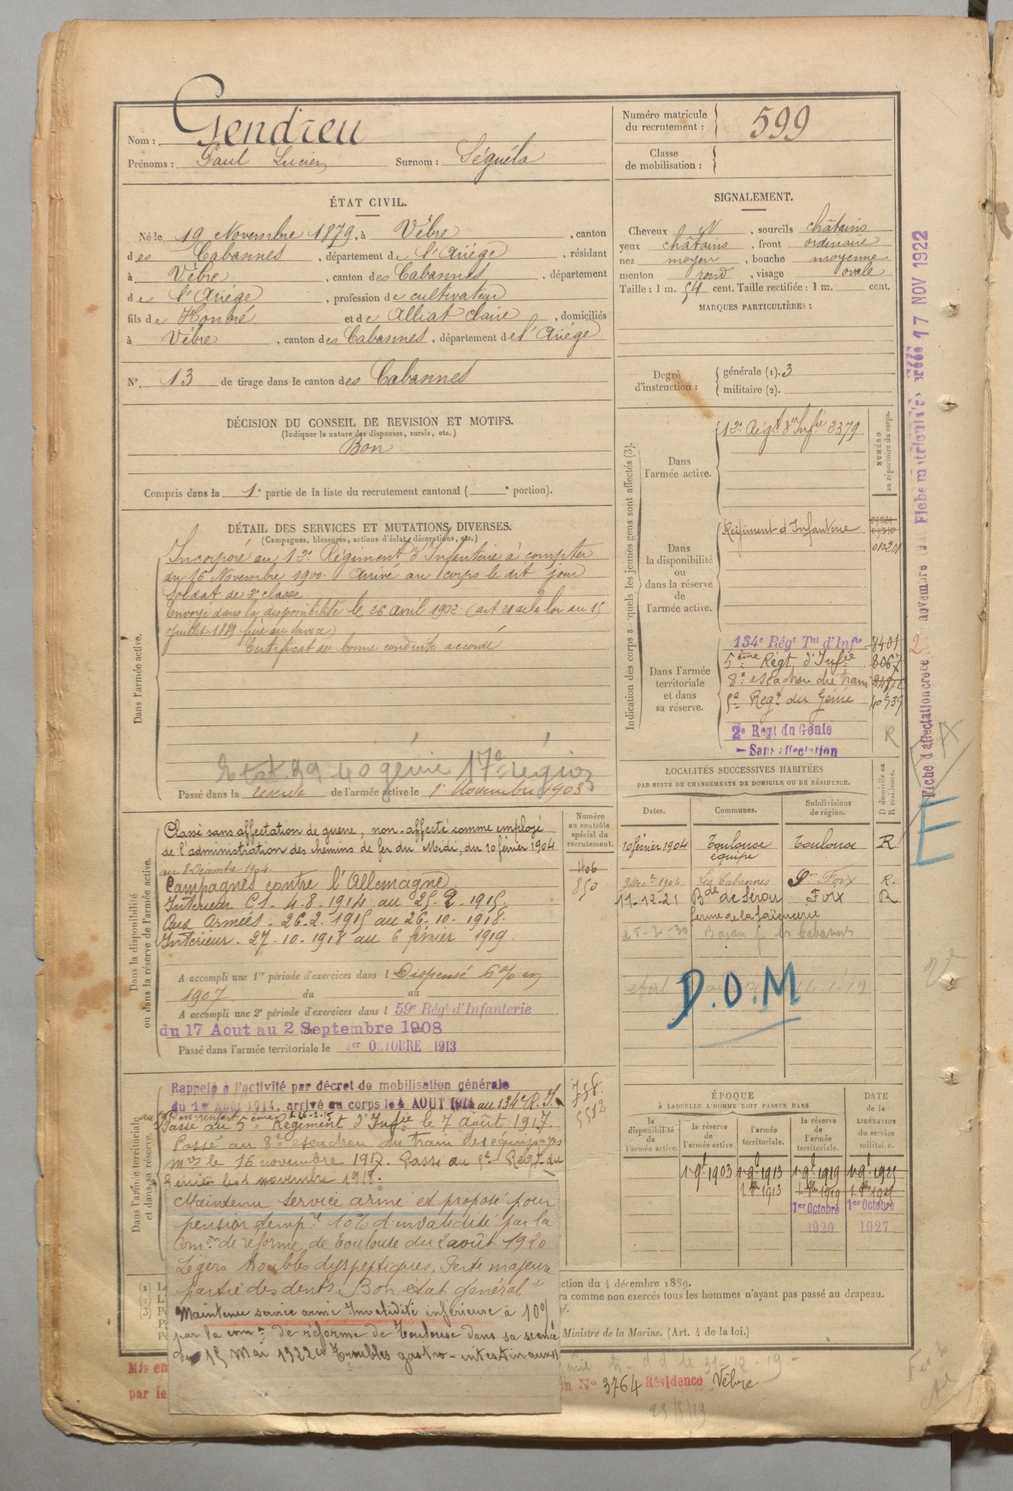 Nom : Gendreu
Prénoms : Paul Lucien Surnom : Séguéla
Numéro matricule
du recrutement : 599
Classe
de mobilisation :
ÉTAT CIVIL.
Né le 19 Novembre 1879, à Vèbre, canton
des Cabannes, département de l'Ariège, résidant
à Vèbre, canton des Cabannes, département
de l'Ariège, profession de cultivateur
fils de Honoré et de Alliat Claire, domiciliés
à Vèbre, canton des Cabannes, département de l'Ariège
N° 13 de tirage dans le canton des Cabannes
DÉCISION DU CONSEIL DE REVISION ET MOTIFS.
(Indiquer la nature des dispenses, sursis, etc.)
Bon
Compris dans la 1e partie de la liste du recrutement cantonal ( e portion).
DÉTAIL DES SERVICES ET MUTATIONS DIVERSES.
(Campagnes, blessures, actions d'éclat, décorations, etc.)
Dans l'armée active.
Incorporé au 12e Régiment d'Infanterie à compter
du 16 Novembre 1900. Arrivé au corps le dit jour
Soldat de 2e classe
Envoyé dans la disponibilité le 26 avril 1902 (art de la loi du 15
Juillet 1889
Certificat de bonne conduite accordé
génie 17e région
Passé dans la réserve de l'armée active le 1er Novembre 1903
Dans la disponibilité
ou dans la réserve de l'armée active.
Classé sans affectation de guerre, non-affecté comme employé
de l'administration des chemins de fer du Midi, du 10 février 1904
au 2 Décembre 1904
Campagnes contre l'Allemagne
Intérieur C1. 4-8-1914 au 25-2-1915
Aux Armées. 26-2-1915 au 26-10-1918.
Intérieur. 27-10-1918 au 6 février 1919.
A accompli une 1re période d'exercices dans l Dispensé
1907 du au
A accompli une 2e période d'exercices dans l 59e Rég. d'Infanterie
du 17 Aout au 2 Septembre 1908
Passé dans l'armée territoriale le 1er OCTOBRE 1913
Numéro
au contrôle
spécial du
recrutement.
1106
850
Dans l'armée territoriale
et dans sa réserve.
Rappelé à l'activité par décret de mobilisation générale
du 1er Août 1914, arrivé au corps le 4 AOUT 1914 au 134e R.I.
Passé au 5ème Régiment d'Infie le 7 août 1917.
Passé au 8e escadron du train des équipages
mres le 16 novembre 1917. Passé au 2e Régt du
Génie le novembre 1918.
Maintenu service armé et proposé pour
pension temp. 10% d'invalidité par la
Com. de réforme de Toulouse du 2 août 1920
Légers troubles dyspeptiques, Perte majeure
partie des dents. Bon état général
Maintenu service armé Invalidité inférieure à 10%
par la com. de réforme de Toulouse dans sa séance
du 15 Mai 1922 Troubles gastro-intestinaux
SIGNALEMENT.
Cheveux , sourcils châtains
yeux châtains, front ordinaire
nez moyen, bouche moyenne
menton rond, visage ovale
Taille : 1 m. 54 cent. Taille rectifiée : 1 m. cent.
MARQUES PARTICULIÈRES :
Degré
d'instruction :
générale (1). 3
militaire (2).
Indication des corps auxquels les jeunes gens sont affectés (3).
NUMÉRO
au répertoire du corps.
Dans
l'armée active.
12e Régt d'Infie 2379
Dans
la disponibilité
ou
dans la réserve
de
l'armée active.
Régiment d'Infanterie
Dans l'armée
territoriale
et dans
sa réserve.
134e Régt Tal d'Infie 8401
5ème Régt d'Infie 8067
8e escadron du train
Régt du Génie
2e Régt du Génie
R
— Sans affectation
LOCALITÉS SUCCESSIVES HABITÉES
PAR SUITE DE CHANGEMENTS DE DOMICILE OU DE RÉSIDENCE.
D domicile ou
R résidence.
Dates. Communes. Subdivisions
de région.
10 février 1904 Toulouse Toulouse R
équipe
2 Déc. 1904 Les Cabannes Foix R.
11-12-21 Bde de Sérou Foix R
D.O.M
ÉPOQUE
À LAQUELLE L'HOMME DOIT PASSER DANS
DATE
de la
LIBÉRATION
du service
militaire.
la
disponibilité
de
l'armée active.
la réserve
de
l'armée active.
l'armée
territoriale.
la réserve
de
l'armée
territoriale.
1903 1913 1919
1913 1919
1er Octobre 1er Octobre
1920 1927
ction du 4 décembre 1889.
ra comme non exercés tous les hommes n'ayant pas passé au drapeau.
Ministre de la Marine. (Art. 4 de la loi.)
Mis en
par le
N° 3764 Résidence Vèbre
Fiche d'affectation créée 2 novembre
Fiche matricule créée 17 NOV 1922